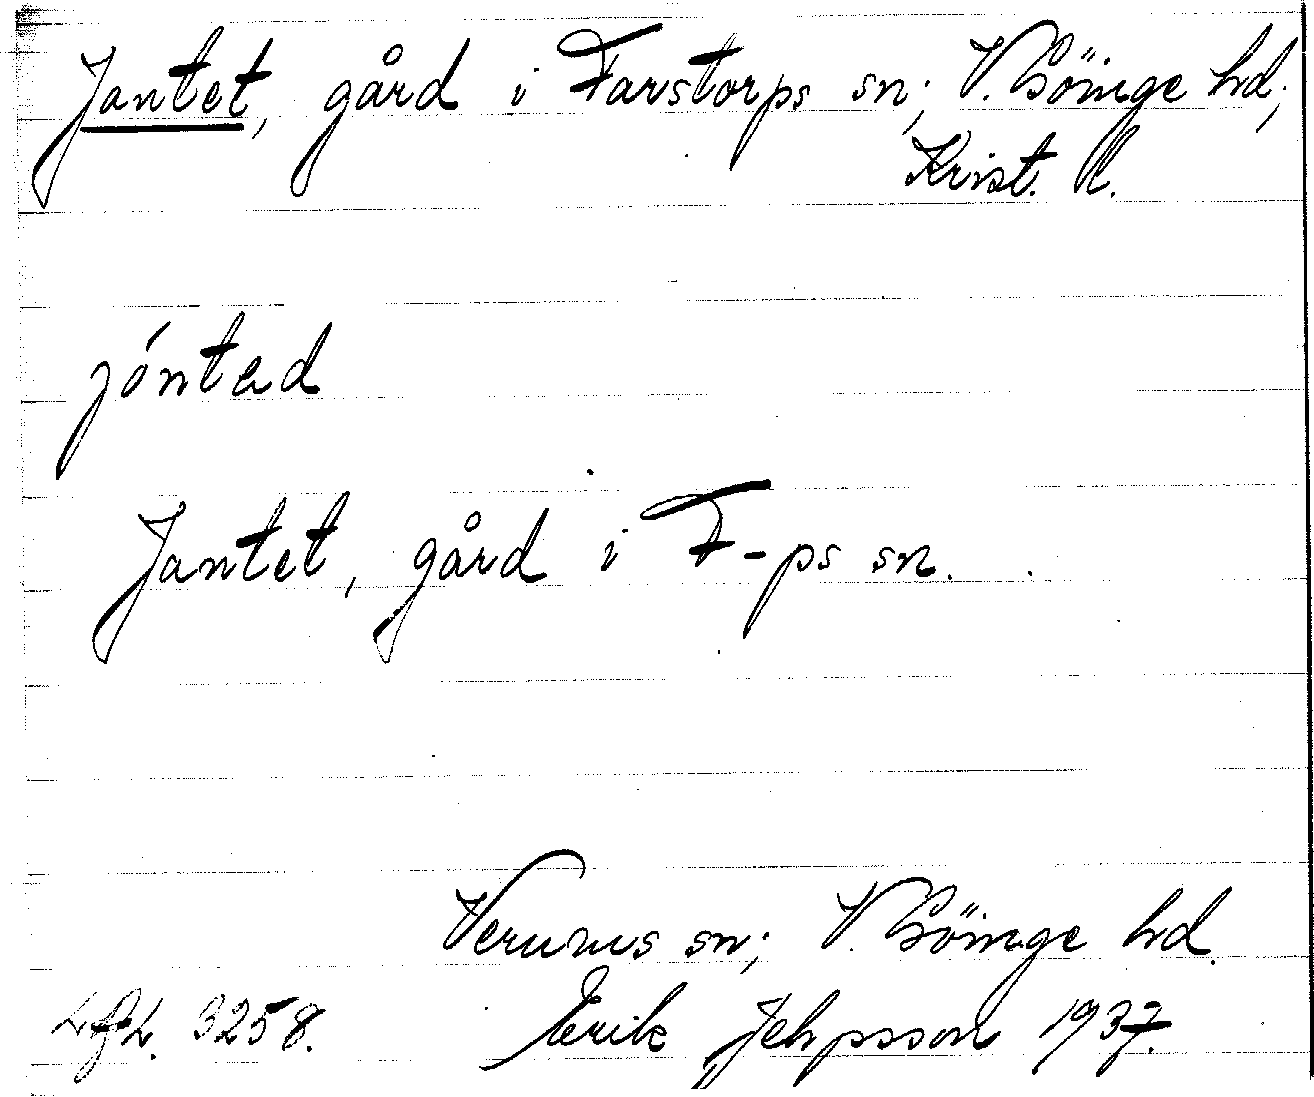 Jantet, gård i Farstorps sn; V. Göinge hd;
Krist. l.
jóntəd
Jantet, gård i F-ps sn.
Verums sn; V. Göinge hd.
3258. Erik Jehpsson 1937.